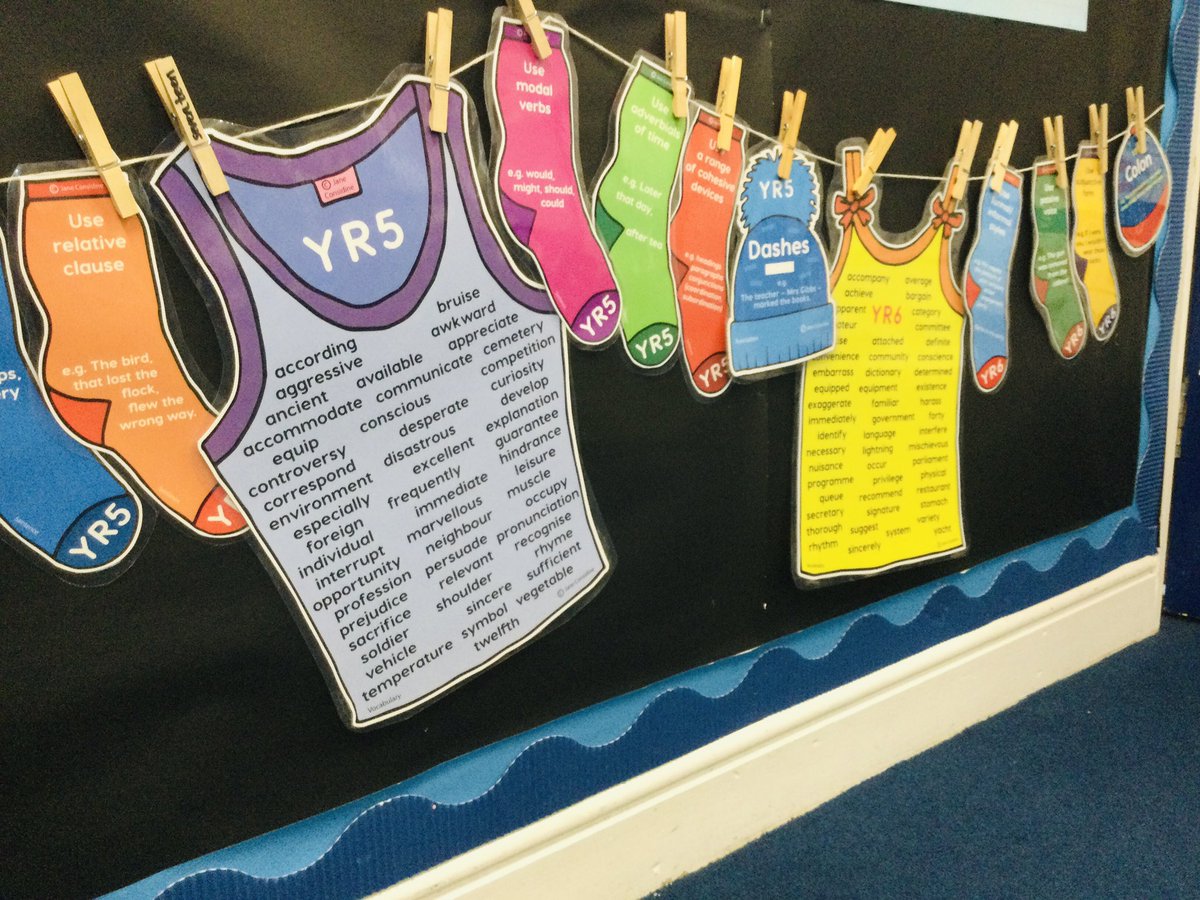 ps,
ery
YR5
© Jane Considine
Use
relative
clause
e.g. The bird,
that lost the
flock,
flew the
wrong way.
Y
seateen
© Jane
Considine
YR5
bruise
according awkward
aggressive available appreciate
ancient communicate cemetery
accommodate conscious competition
equip desperate curiosity
controversy disastrous develop
correspond excellent explanation
environment frequently guarantee
especially immediate hindrance
foreign marvellous leisure
individual neighbour muscle
interrupt persuade occupy
opportunity relevant pronunciation
profession shoulder recognise
prejudice sincere rhyme
sacrifice symbol sufficient
soldier twelfth vegetable
vehicle
temperature
Vocabulary
© Jane Considine
Use
modal
verbs
e.g. would,
might, should,
could
YR5
Use
adverbials
of time
e.g. Later
that day,
after tea
YR5
Use
a range
of cohesive
devices
e.g. headings
paragraphs
conjunctions
(coordination,
subordination)
YR5
YR5
Dashes
e.g.
The teacher – Mrs Gibbs –
marked the books.
accompany average
achieve bargain
apparent YR6 category
ateur committee
ise attached definite
convenience community conscience
embarrass dictionary determined
equipped equipment existence
exaggerate familiar harass
immediately government forty
identify language interfere
necessary lightning mischievous
nuisance occur parliament
programme privilege physical
queue recommend restaurant
secretary signature stomach
thorough suggest system variety
rhythm sincerely yacht
Vocabulary
YR6
YR6
YR6
Colon